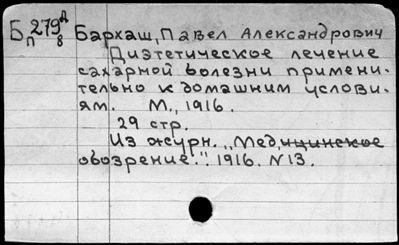 Б 279 д
п 8
Бархаш, Павел Александрович
Диэтетическое лечение
сахарной болезни примени-
тельно к домашним услови-
ям. М., 1916.
29 стр.
Из журн. „Мед.ицинское
обозрение.". 1916. N13.